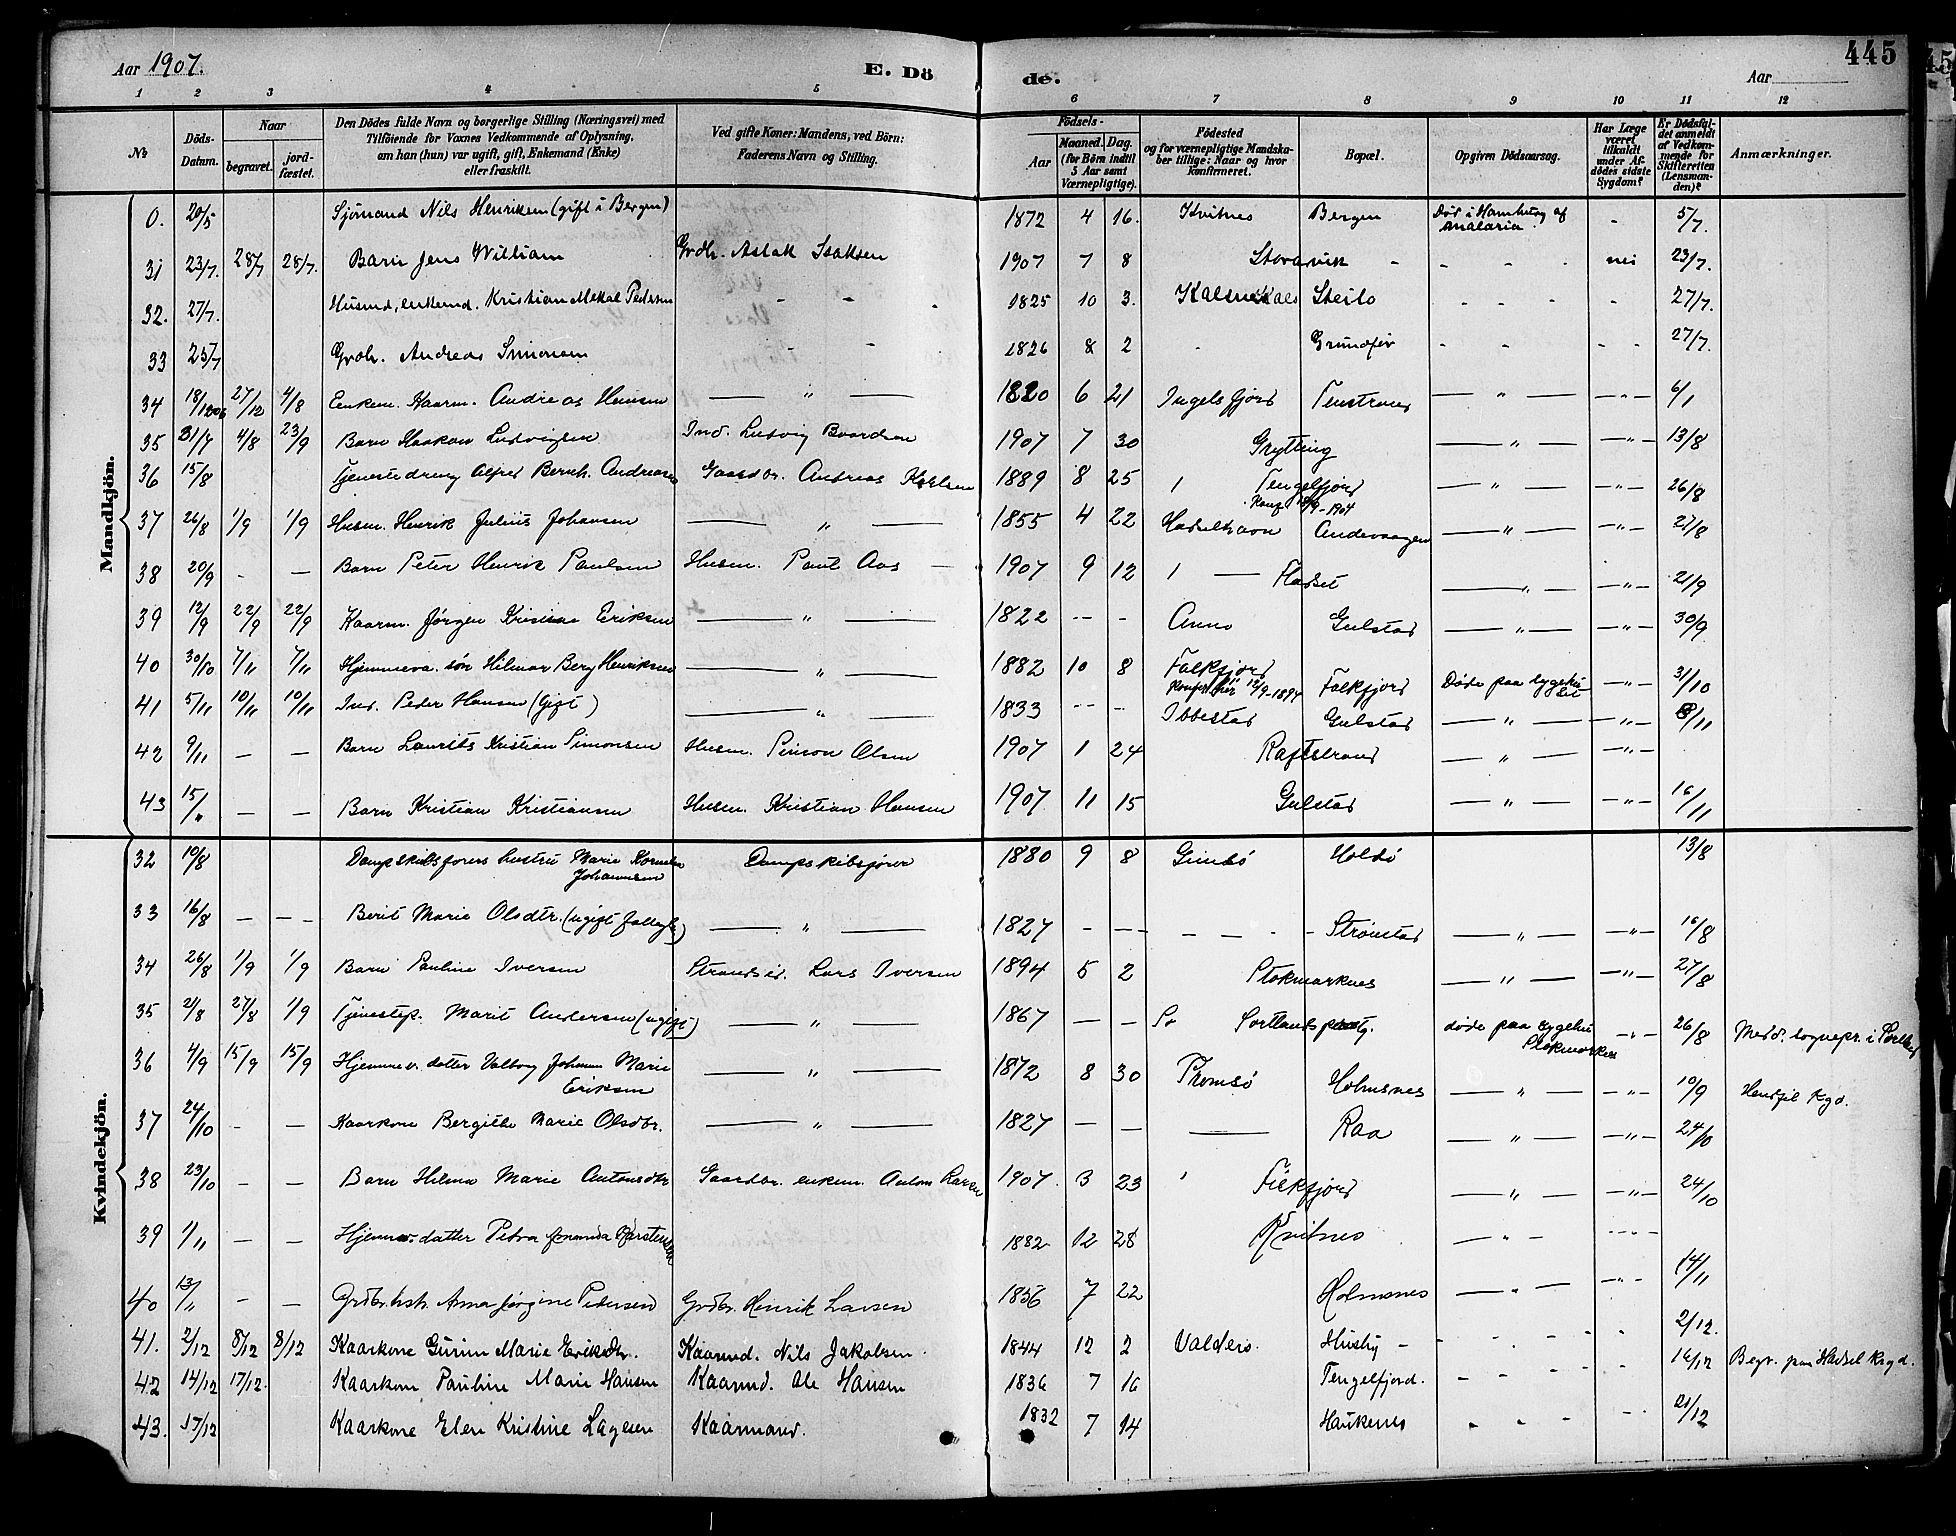 Aar 1907. E. Dö de. Aar 445
1 2 3 4 5 6 7 8 9 10 11 12
№ Döds-Datum. Naar begravet. jordfæstet. Den Dödes fulde Navn og borgerlige Stilling (Næringsvei) med Tilföiende for Voxnes Vedkommende af Oplysning, om han (hun) var ugift, gift, Enkemand (Enke) eller fraskilt. Ved gifte Koner: Mandens, ved Börn: Faderens Navn og Stilling. Födsels- Aar Maaned. Dag. (for Börn indtil 5 Aar samt Værnepligtige). Födested og for værnepligtige Mandskaber tillige: Naar og hvor konfirmeret. Bopæl. Opgiven Dödsaarsag. Har Læge været tilkaldt under Afdödes sidste Sygdom? Er Dödsfaldet anmeldt af Vedkommende for Skifteretten (Lensmanden)? Anmærkninger.
Mandkjön.
0. 20/5 Sjømand Nils Henriksen (gift i Bergen) 1872 4 16. Kvitnes Bergen Død i Hamburg af Malaria. - 5/7.
31 23/7. 28/7 28/7. Barn Jens William Grdbr. Aslak Isaksen 1907 7 8 Storavik - - - nei 23/7.
32. 27/7. Husmd, enkemd. Kristian Mekal Pedersen - - - 1825 10 3. Steilo - - - - 27/7.
33 25/7 Grdbr. Andreas Simonsen - - 1826 8 2 - Grundfør - - - - 27/7.
34 18/12 06 27/12 4/8 Enkem. Kaarm. Andreas Hansen — " — 1820 6 21 Ingelsfjord Tenstrand — " — — " — 6/1
35 31/7 4/8 23/9 Barn Haakon Ludvigsen Ind. Ludvig Baardsen 1907 7 30 Grytting — " — — " — 13/8
36 15/8 Tjenestedreng Alfred Bernh. Andreasen Gaardbr. Andreas Karlsen 1889 8 25 Tengelfjord — " — — " — 26/8
37 26/8 1/9 1/9 Husm. Henrik Julius Johansen — " — 1855 4 22 Hadselhavn Andersvaagen — " — — " — 27/8
38 20/9 - — Barn Peter Henrik Paulsen Husm. Paul Aas — 1907 9 12 — Fladset — " — — " — 21/9
39 12/9 22/9 22/9 Kaarm. Jørgen Eriksen — " — 1822 -- - Anno Gulstad — " — — " — 30/9
40 30/10 7/11 7/11 Hjemmevæ. søn Hilmar Berg Henriksen — " — 1882 10 8 Falkfjord Konf. her 12/9-1894 Falkfjord Døde paa sygehuset — " — 31/10
41 5/11 10/11 10/11 Ind. Peder Hansen (gift) — " — 1833 -- - Ibbestad Gulstad — " — — " — 8/11
42 9/11 — — Barn Laurits Kristian Simonsen Husm. Simon Olsen 1907 1 24 Raftstrand — " — — " —
43 15/" — — Barn Kristian Kristiansen Husm. Kristian Hansen 1907 11 15 Gulstad — " — — " — 16/11
Kvindekjön.
32 10/8 Dampskibsførers hustru Marie Johannesen Dampskibsfører 1880 9 8 Gimsø Holdø 13/8
33 16/8 — - — Berit Marie Olsdtr. (ugift fattigl.) — " — 1827 - -- - - - - - Strømstad — " — — " — 16/8
34 26/8 1/9 1/9 Barn Pauline Iversen Strandsid. Lars Iversen 1894 5 2 Stokmarknes — " — — " — 27/8
35 21/8 27/8 1/9 Tjenestep. Marit Andersen (ugift) — " — 1867 — — Sortlands døde paa sygehu Stokmarknes - " - 26/8 Medd. sognepr. i Sortland
36 4/9 15/9 15/9 Hjemmev. datter Valborg Johanna Marie Eriksen — " — 1872 8 30 Tromsø Holmsnes — " — — " — 10/9 Hadsel Kgd.
37 24/10 - — Kaarkone Bergitte Marie Olsdtr. — " — 1827 — — — Raa — " — — " — 24/10
38 23/10 — — Barn Helma Marie Antonsdtr Gaardbr. enkem. Anton Larsen 1907. 3 23 Fiskfjord — " — — " — 24/10
39 1/11 — — Hjemmev. datter Petra 1882 12 28 Kvitnes — " — - " -
40 13/" — — Grdbr.hstr. Anna Jørgine Pedersen Grdbr. Henrik Larsen 1856 7 22 Holmsnes — " — - " - 14/11
41. 2/12 8/12 8/12 Kaarkone Gurine Marie Eriksdtr. Kaarmd. Nils Jakobsen. 1844 12 2 Valders. Husby - - - - - 2/12.
42 14/12 17/12. Kaarkone Pauline Marie Hansen Kaarmd. Ole Hansen 1836 7 16 Tengelfjord. - - - - 16/12 Begr. paa Hadsel Kgd.
43. 17/12 Kaarkone Elen Kristine Lagesen Kaarmand. 1832 7 14 Haukenes - - - - 21/12